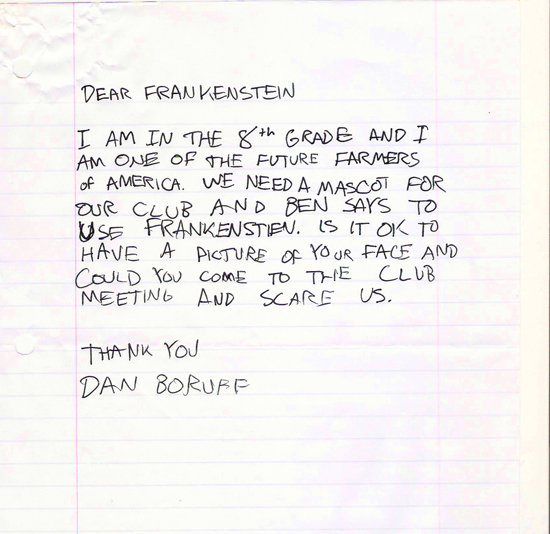 DEAR FRANKENSTEIN
I AM IN THE 8th GRADE AND I
AM ONE OF THE FUTURE FARMERS
of AMERICA. WE NEED A MASCOT FOR
OUR CLUB AND BEN SAYS TO
USE FRANKENSTIEN. IS IT OK TO
HAVE A PICTURE OF YOUR FACE AND
COULD YOU COME TO THE CLUB
MEETING AND SCARE US.
THANK YOU
DAN BORUFF